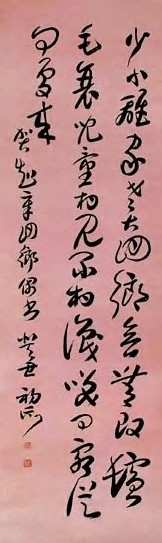 少小離家老大回鄉音無改鬢
毛衰兒童相見不相識笑問客從
何處來
賀知章回鄉偶書